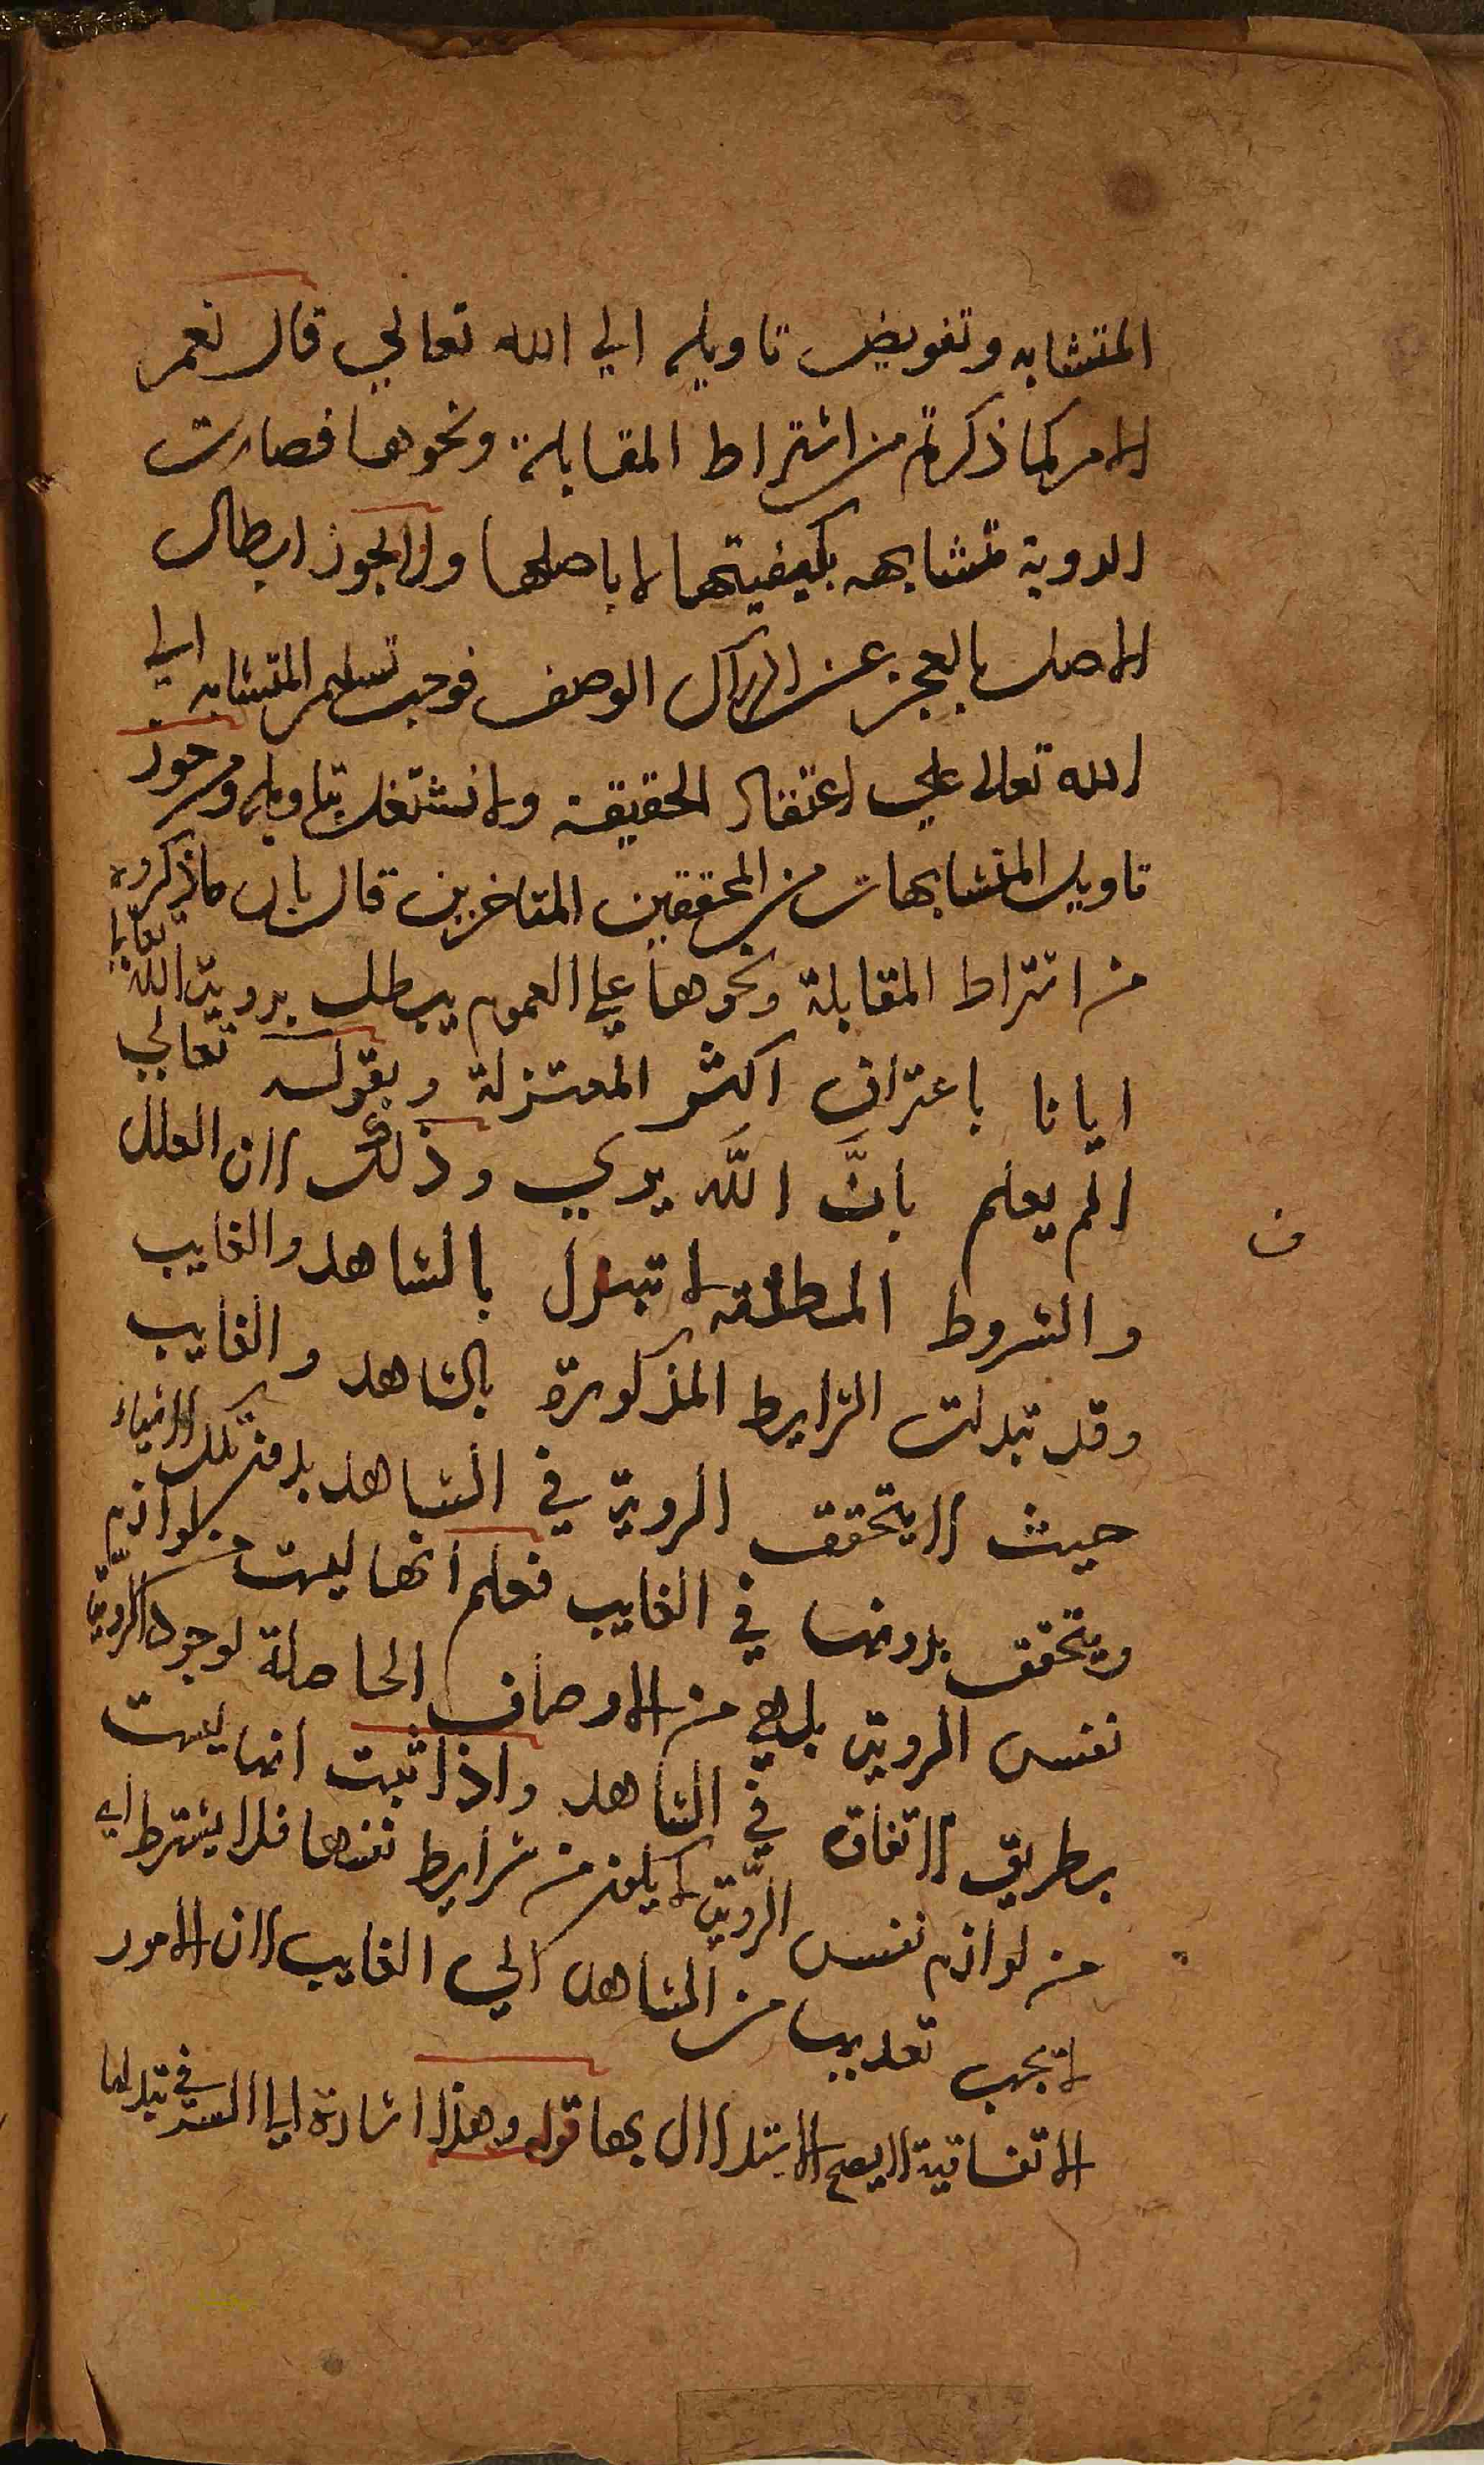 المتشابه وتفويض تاويله الي الله تعالي قال نعم
الامر كما ذكرتم من اشتراط المقابلة ونحوها فصارت
الروية متشابهه بكيفيتها لا باصلها ولا يجوز ابطال
الاصل بالعجز عن ادراك الوصف فوجب تسليم المتشابه الي
الله تعالي علي اعتقاد الحقيقة ولا نشتغل بتاويله ومن جوز
تاويل المتشابهات من المحققين المتاخرين قال بان ما ذكروه
من اشتراط المقابلة ونحوها علي العموم يبطل بروية الله تعالي
ايانا باعتراف اكثر المعتزلة وبقوله تعالي
الم يعلم بانَّ الله يري وذلك لان العلل
ف
والشروط المطلقة لا تبدل بالشاهد والغايب
وقد تبدلت الشرايط المذكورة بالشاهد والغايب
حيث لا يتحقق الروية في الشاهد بدون تلك الاشياء
ويتحقق بدونها في الغايب فعلم انها ليست من لوازم
نفس الروية بل هي من الاوصاف الحاصلة لوجود الروية
بطريق الاتفاق في الشاهد واذا ثبت انها ليست
من لوازم نفس الروية لا يكون من شرايط نفسها فلا يشترط اي
لا يجب تعديها من الشاهد الي الغايب لان الامور
الاتفاقية لا يصح الاستدلال بها قوله وهذا اشارة الي الستر في تبدلها